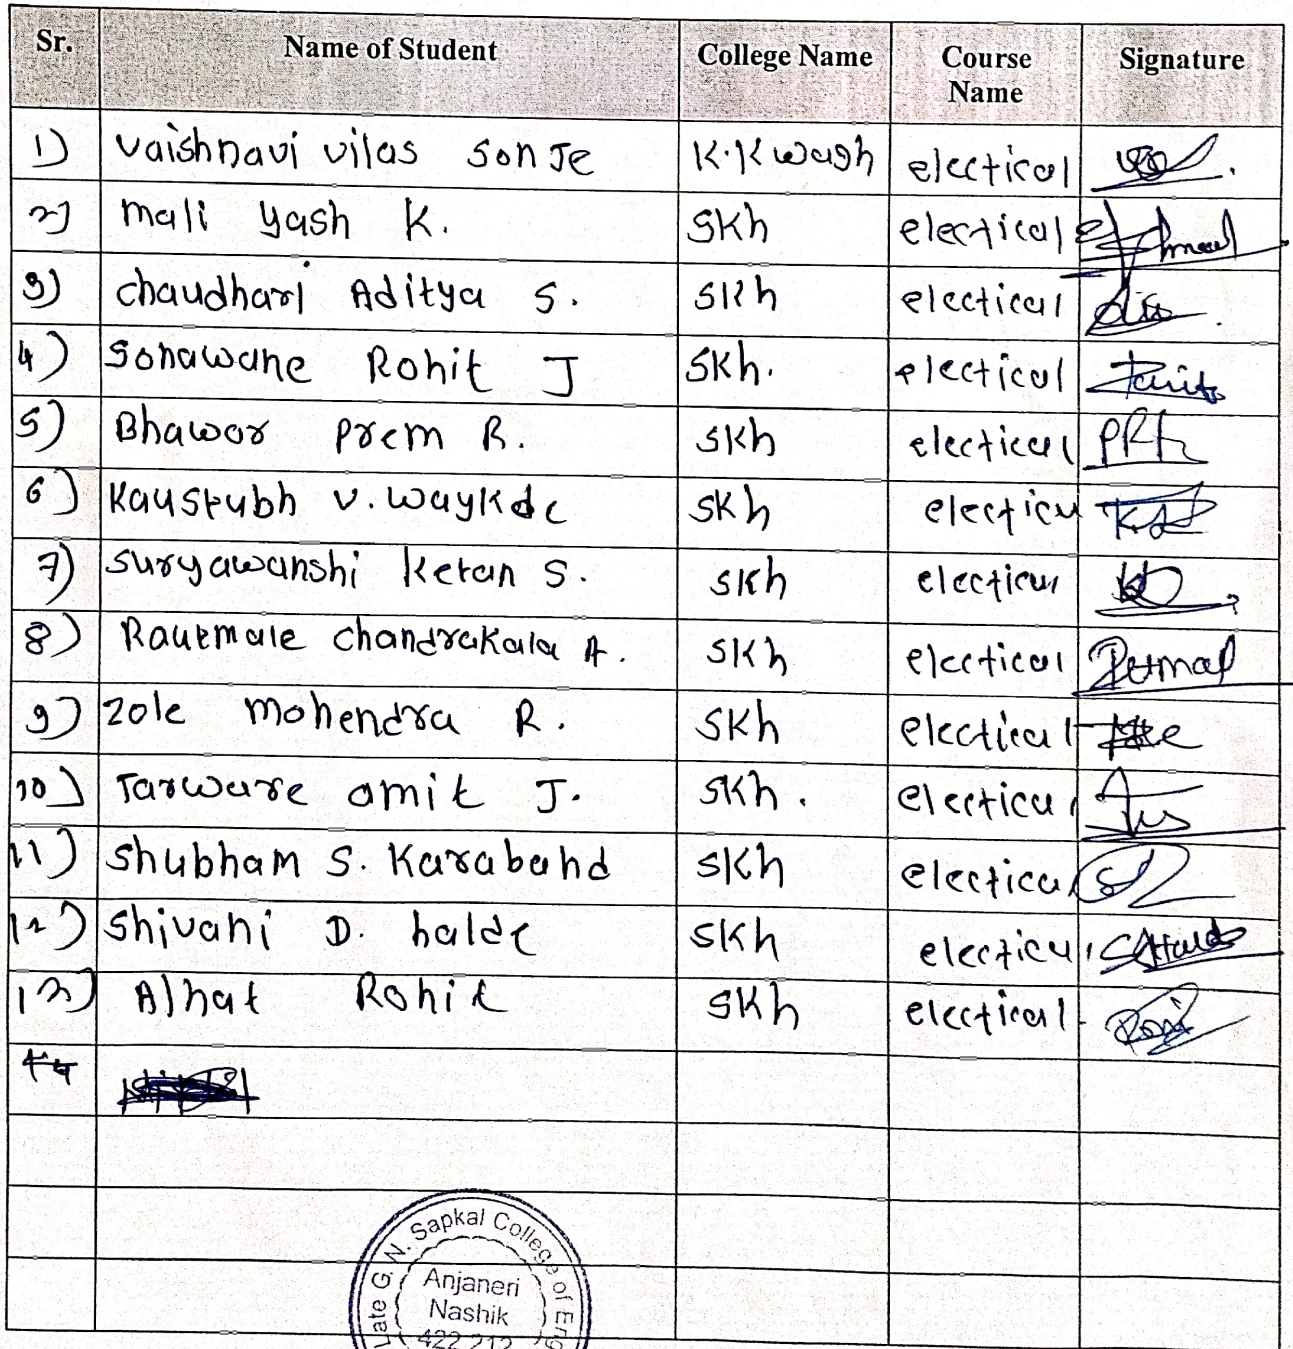 Sr. Name of Student College Name Course Name Signature
1) Vaishnavi vilas sonJe K.K wagh electical
2) Mali yash K. SKh electical
3) chaudhari Aditya S. SKh electical
4) Sonawane Rohit J SKh. electical
5) Bhawar Prem R. SKh electical PRh
6) Kaustubh v. waykde SKh electicu
7) Suryawanshi Ketan S. SKh electicul
8) Rautmale chandrakala A. SKh electical
9) Zole Mohendra R. SKh electical
10) Tarware amit J. SKh. electicul
11) Shubham S. Karaband SKh electical
12) Shivani D. halde SKh electicul
13) Alhat Rohit SKh electical
14
Late G. N. Sapkal College of Eng
Anjaneri
Nashik
422 212